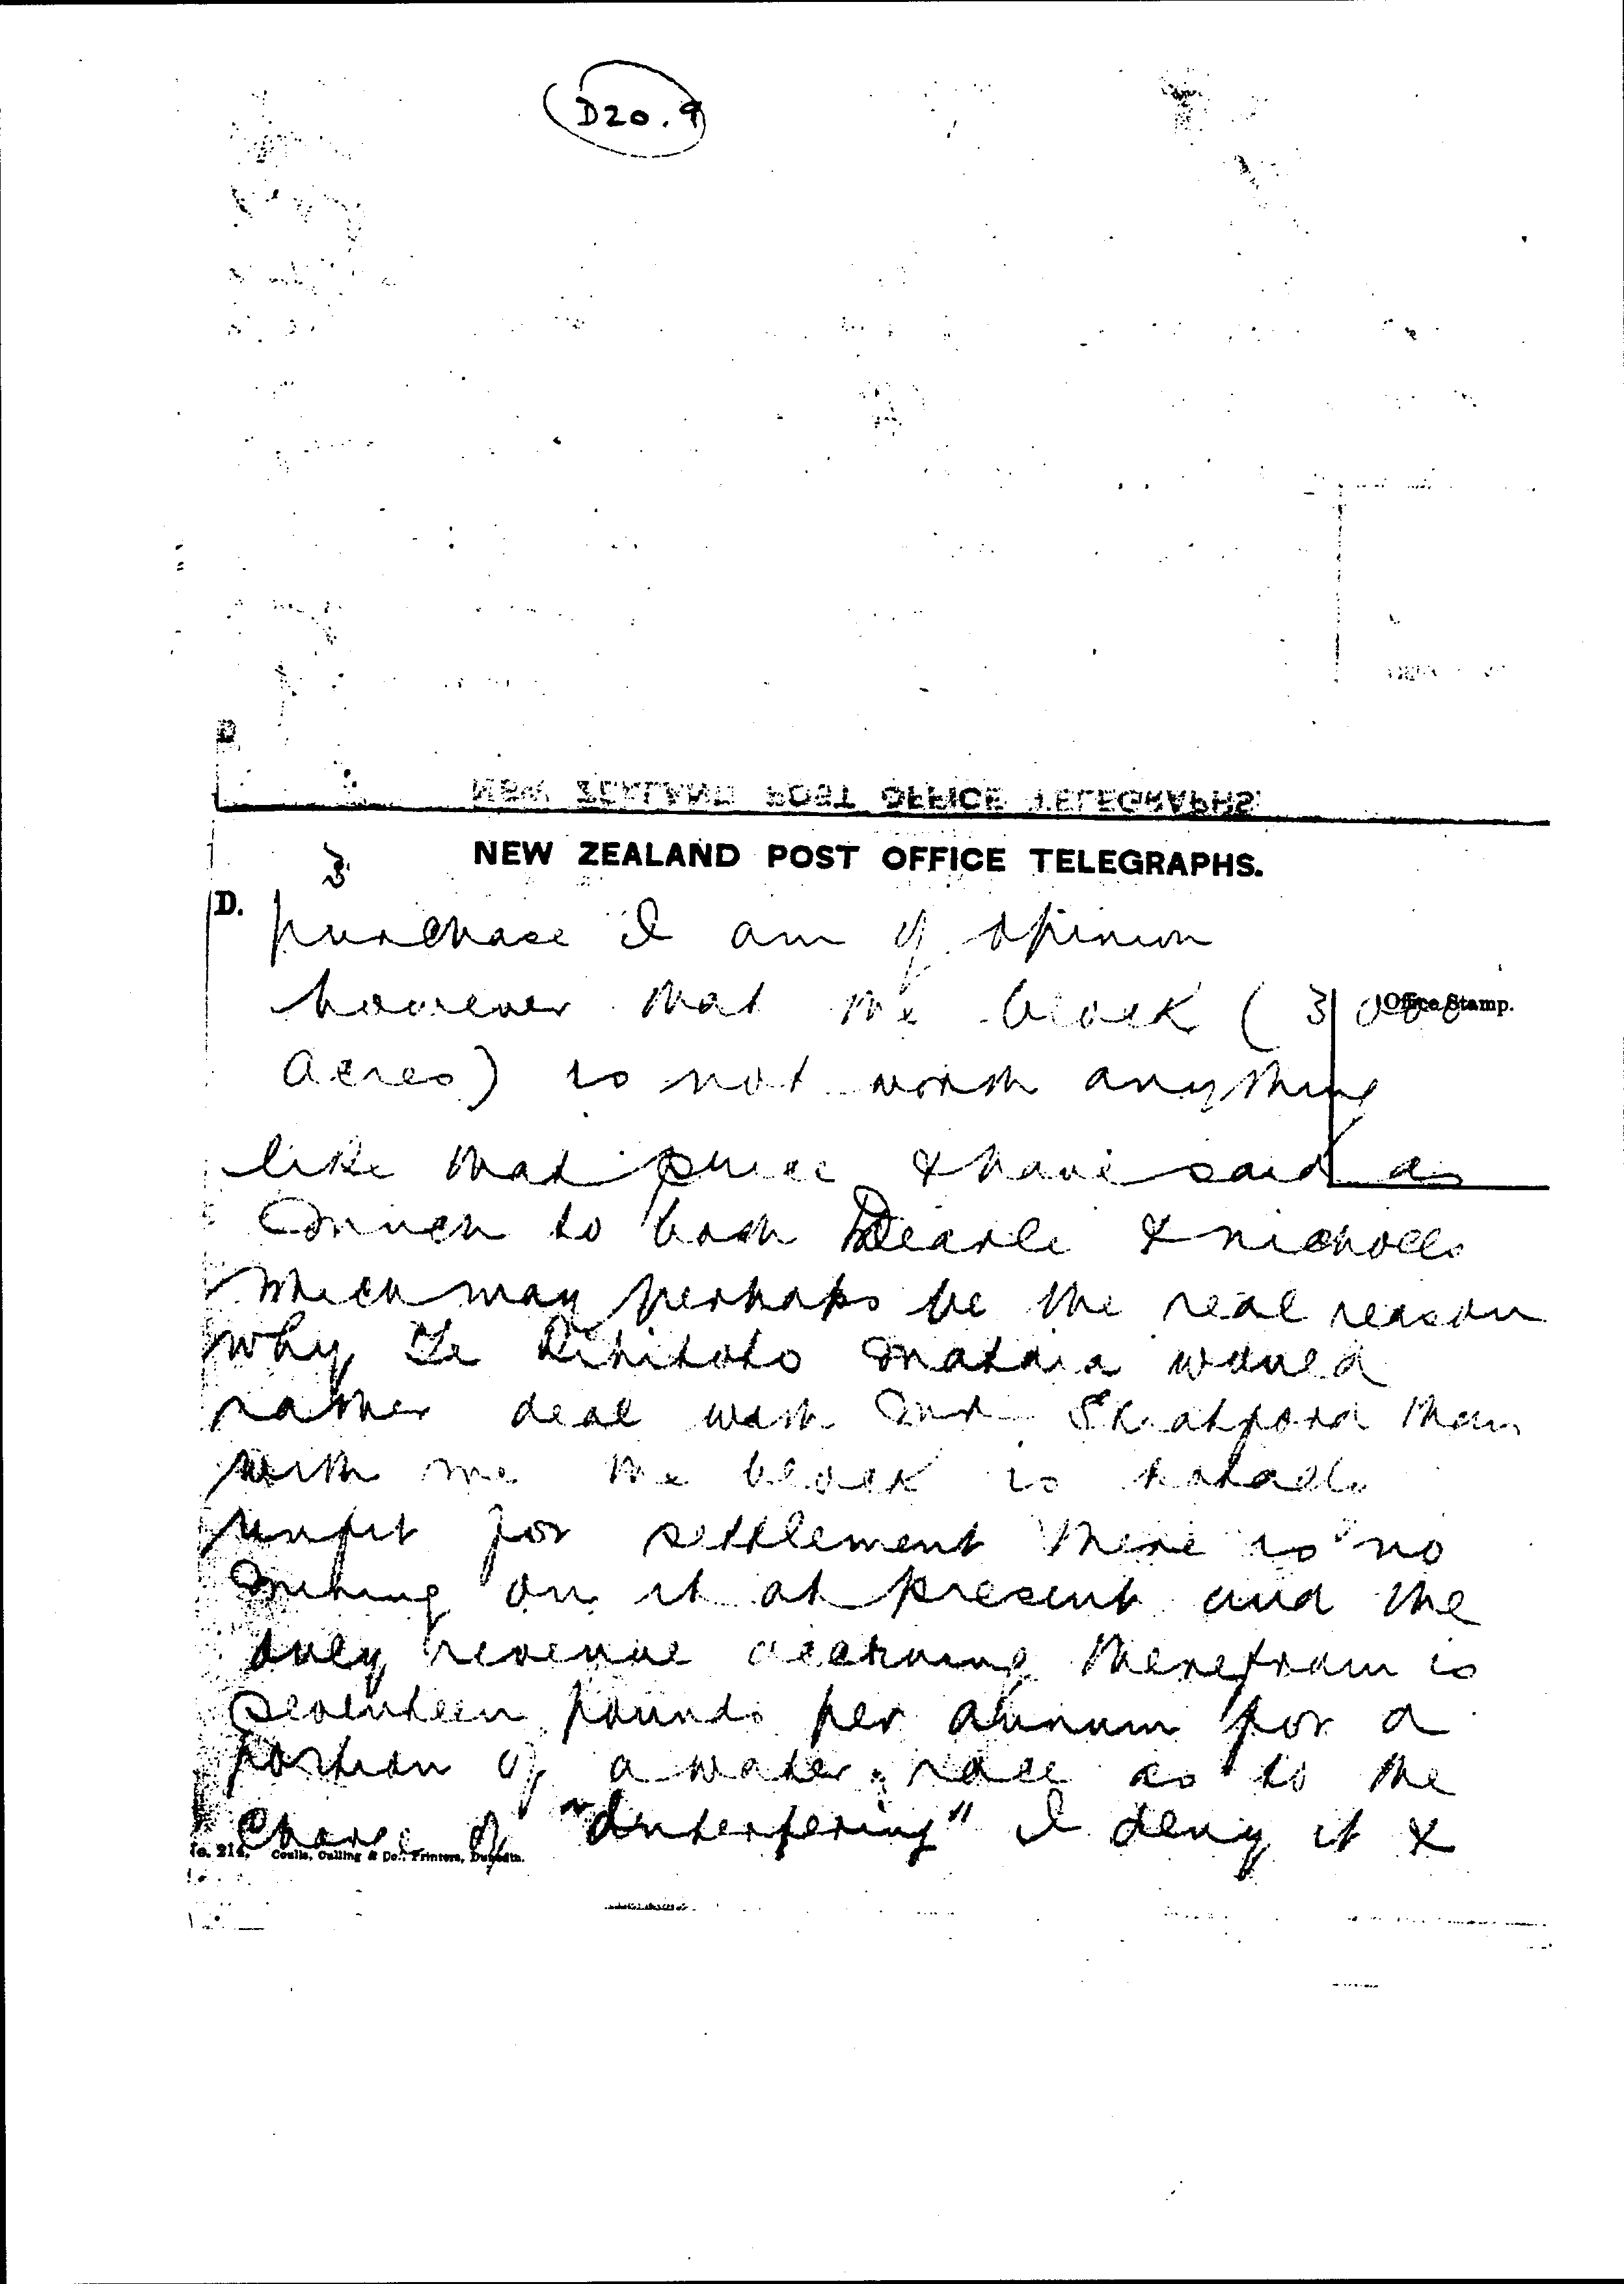 D20.9
NEW ZEALAND POST OFFICE TELEGRAPHS.
3
D.
purchase I am of opinion
however that the block (3000
Office Stamp.
acres) is not worth anything
like that price & have said as
much to both Dearle & nicholls
which may perhaps be the real reason
why Te Rihitoto mataia would
rather deal with mr Shatford than
with me the block is totally
unfit for settlement there is no
mining on it at present and the
only revenue accruing therefrom is
seventeen pounds per annum for a
portion of a water race as to the
charge of "Interfering" I deny it &
Coulls, Culling & Co., Printers, Dunedin.